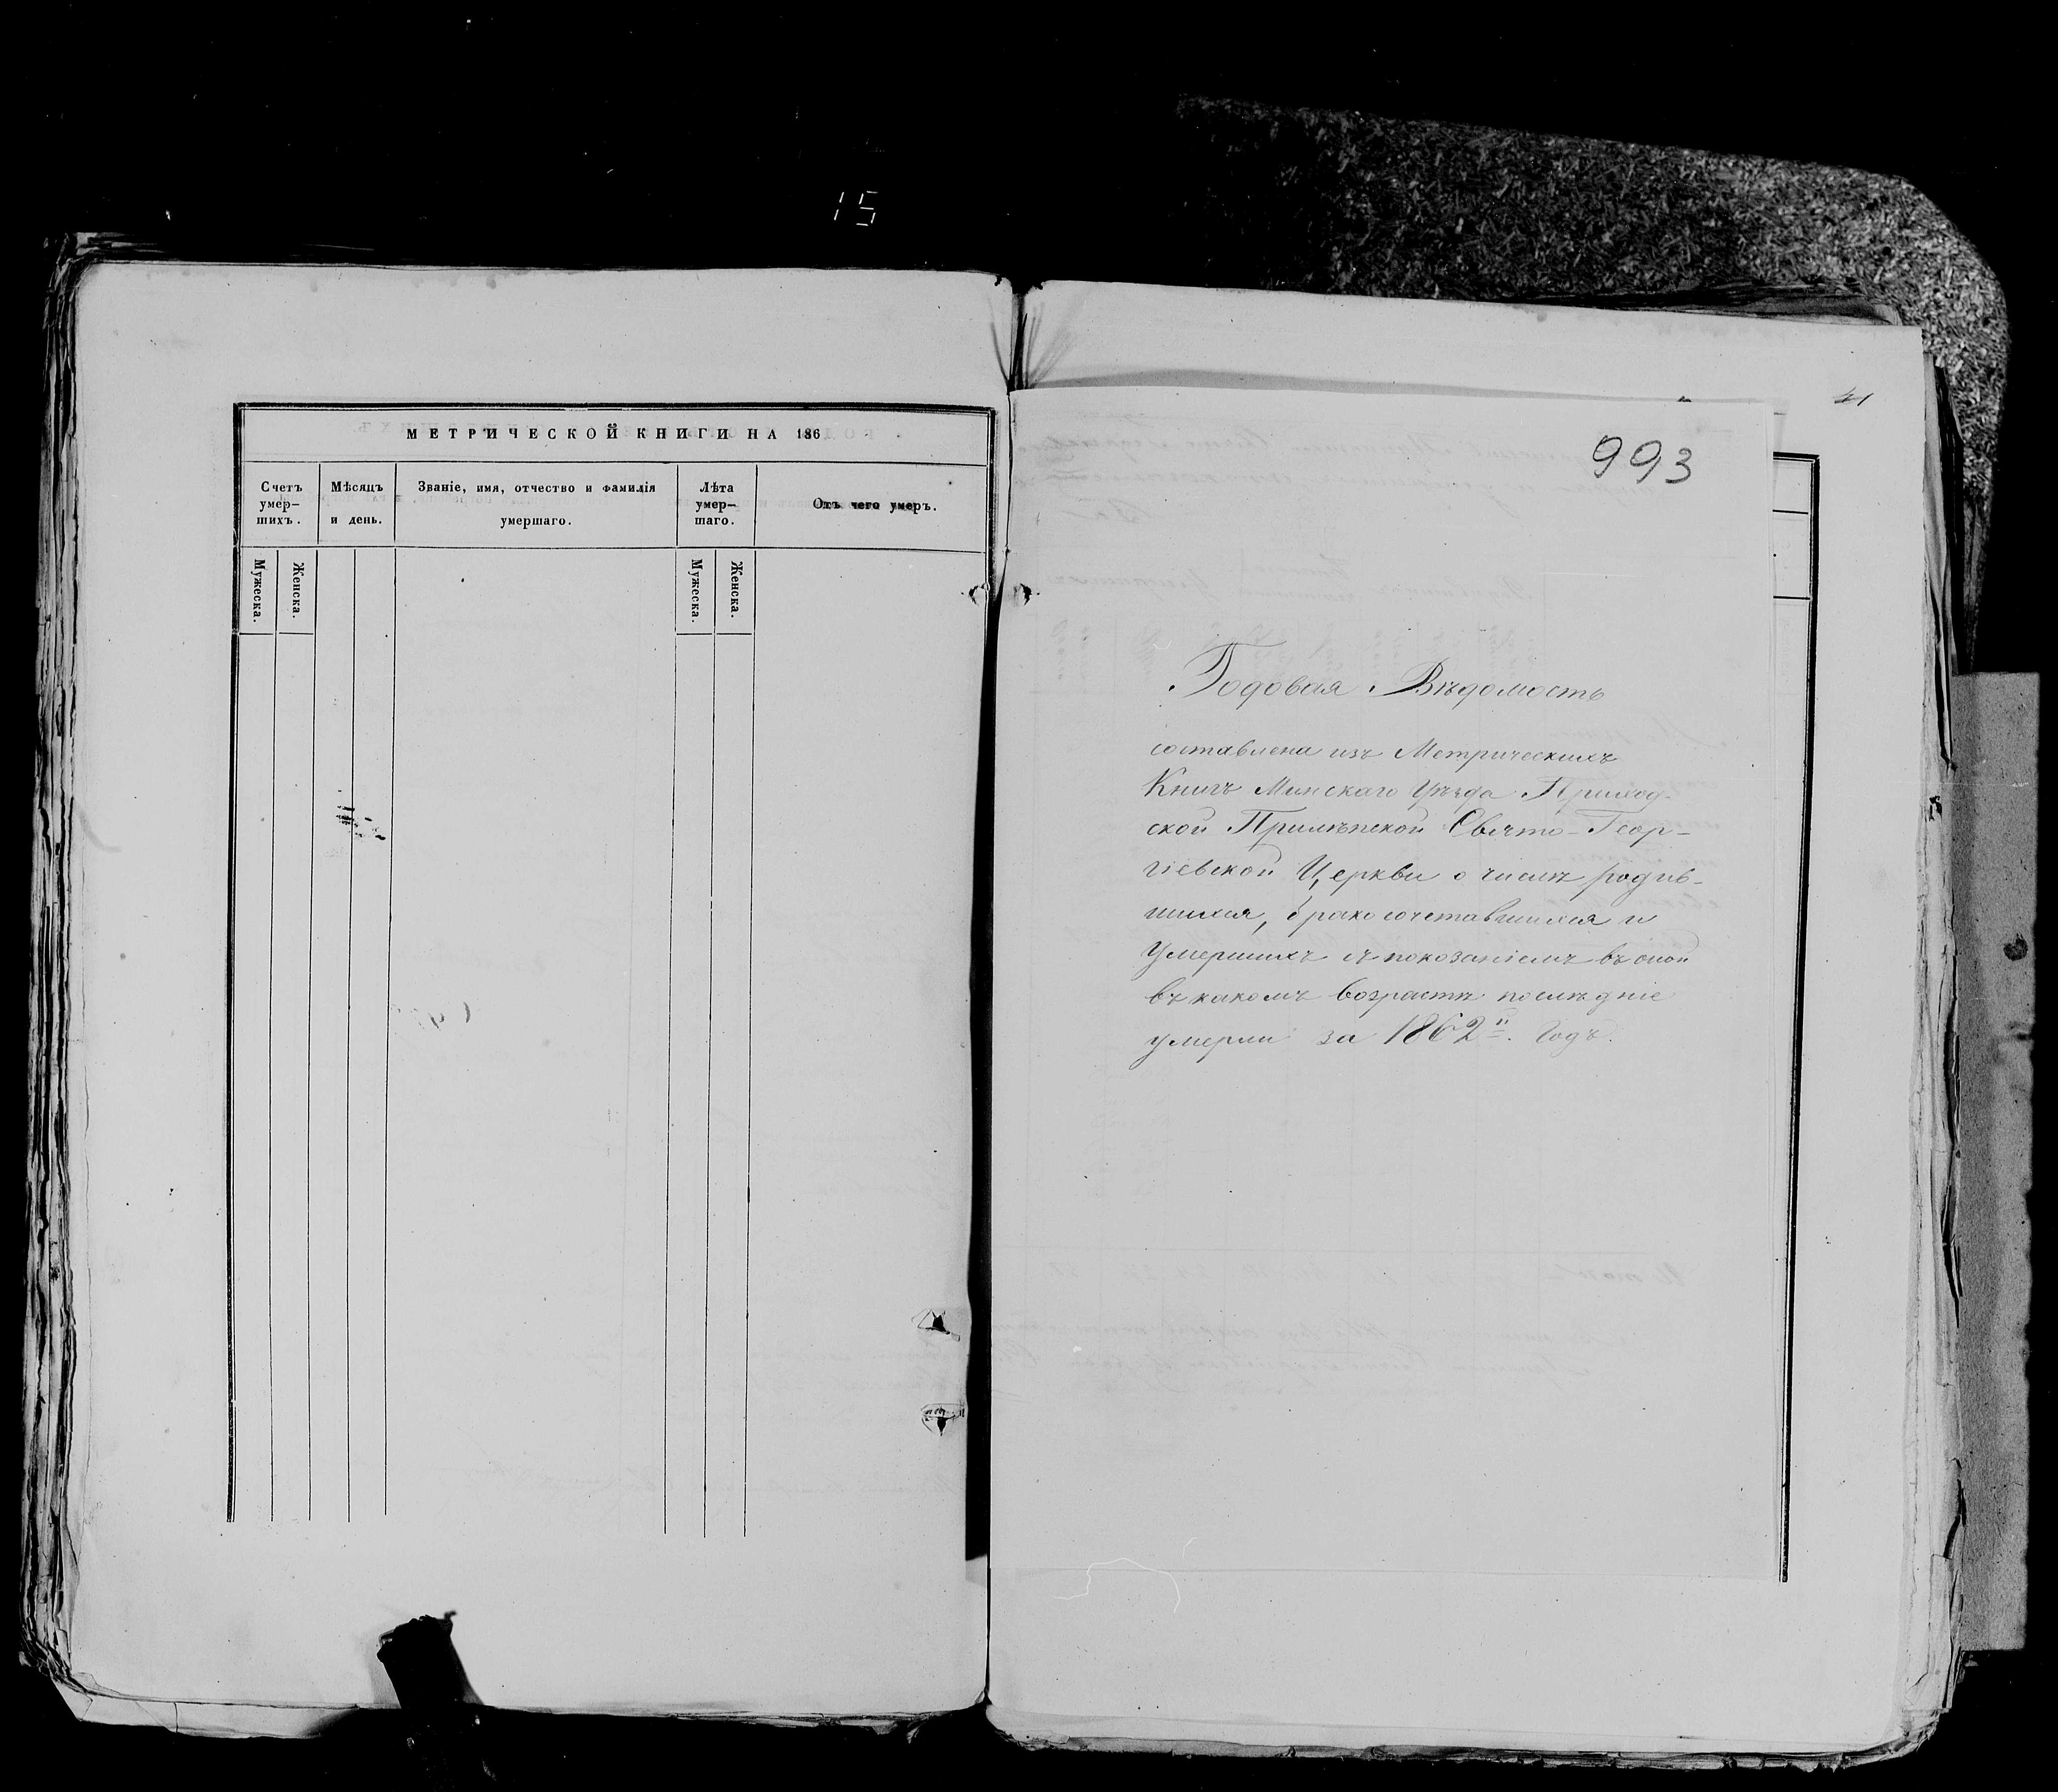 15
МЕТРИЧЕСКОЙ КНИГИ НА 186
Счетъ умер-
шихъ.
Мѣсяцъ
и день.
Званіе, имя, отчество и фамилія
умершаго.
Лѣта
умер-
шаго.
Отъ чего умеръ.
Мужеска.
Женска.
Мужеска.
Женска.
41
993
Годовая Вѣдомость
составлена изъ Метрическихъ
Книгъ Минскаго Уѣзда Приход-
ской Прилѣпской Свято-Геор-
гіевской Церкви о числѣ родив-
шихся, бракосочетавшихся и
Умершихъ съ показаніемъ въ оной
въ какомъ возрастѣ послѣдніе
умерли за 1862й. Годъ.